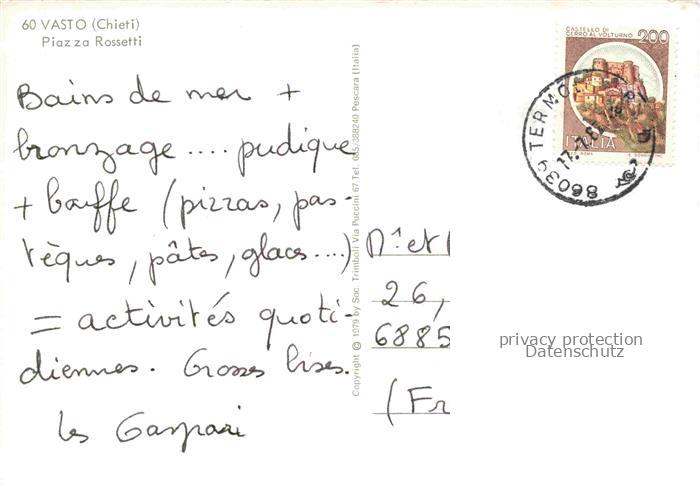 60 VASTO (Chieti)
Piazza Rossetti
Bains de mer +
bronzage .... pudique
+ bouffe (pizzas, pas-
tèques, pâtes, glaces....)
= activités quoti-
diennes. Grosses bises.
les Gaspari
Copyright © 1979 by Soc. Trimboli Via Puccini 67 Tel. 085/388240 Pescara (Italia)
CASTELLO DI
CERRO AL VOLTURNO
200
ITALIA
86039 TERMO
17.7.8
et
26,
6885
(Fr
privacy protection
Datenschutz